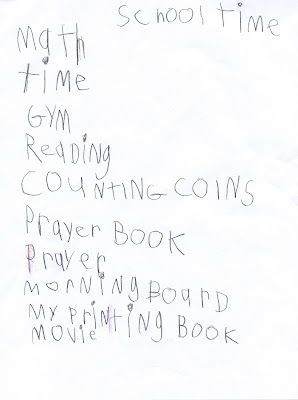 School time
math
time
GYM
Reading
COUNTING COINS
Prayer BOOK
Prayer
mORNING BOARD
My printing BOOK
MOVie